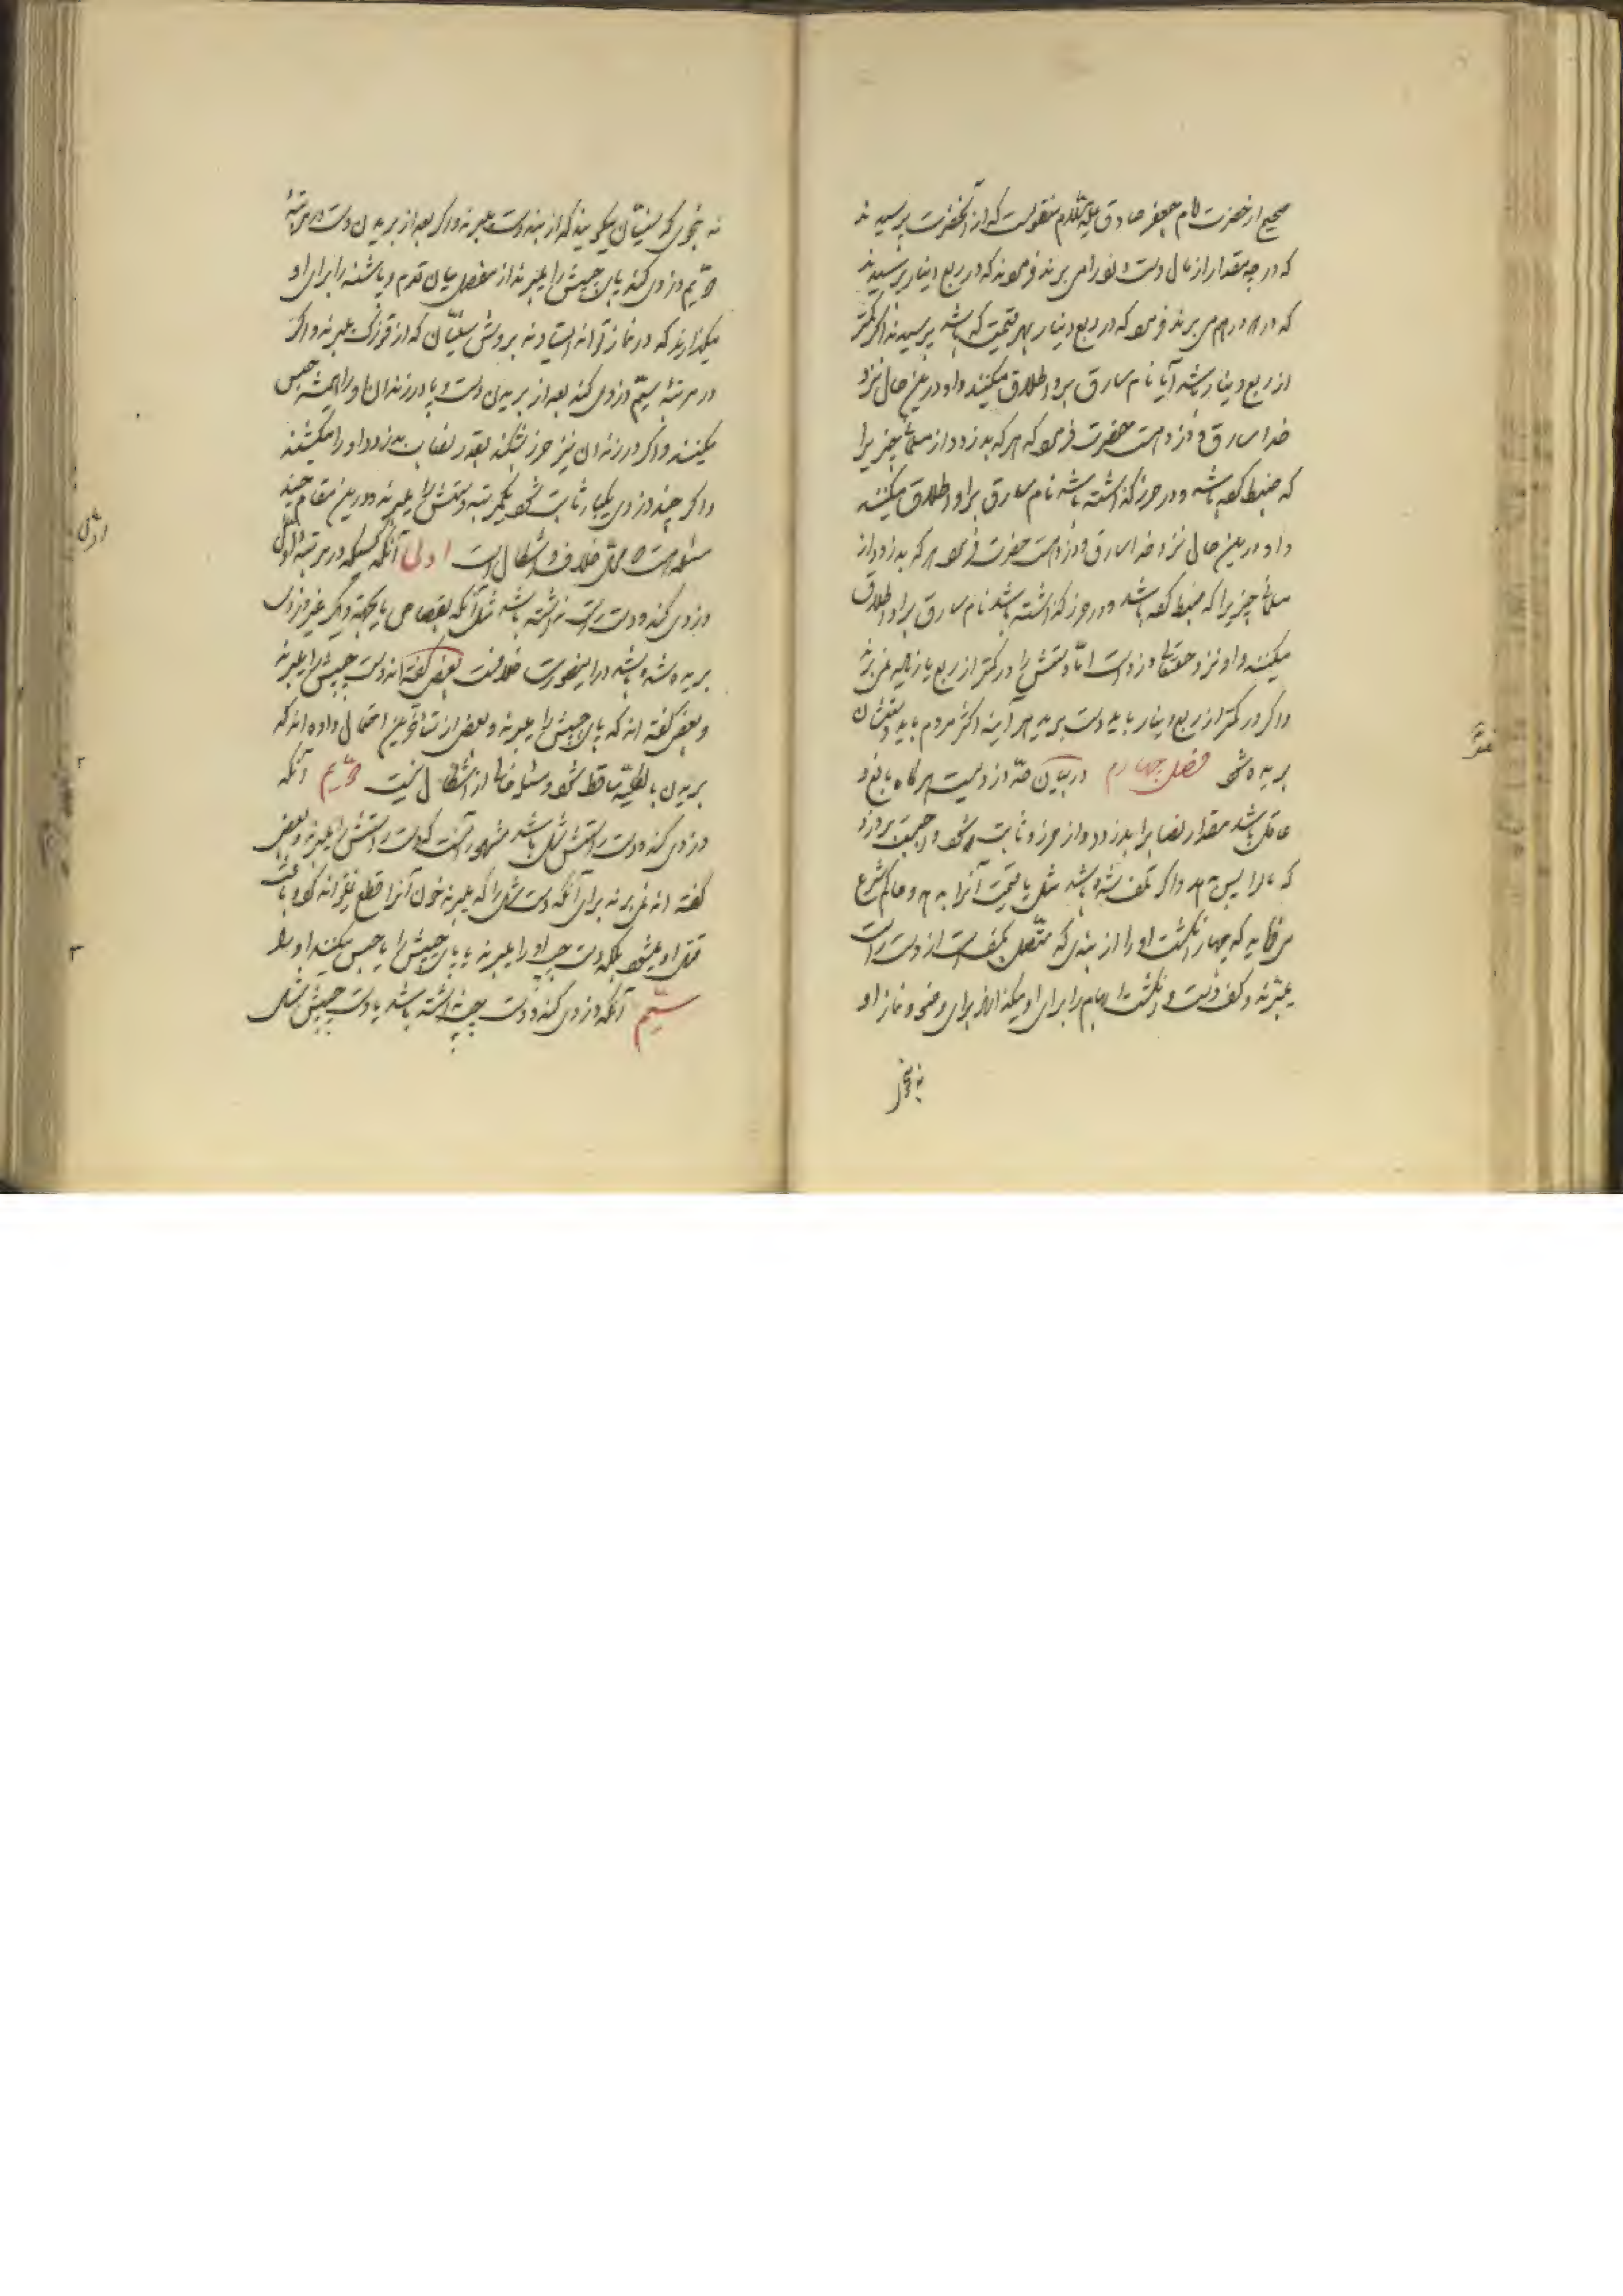 صحیح از حضرت امام جعفر صادق علیه السلام منقولست که از آنحضرت پرسیدند
که در چه مقدار از مال دست دزد را می برند فرمودند که در ربع دینار پرسیدند
که در دو درهم می برند فرمود که در ربع دینار بهر قیمت که باشد پرسیدند اگر کمتر
از ربع دینار باشد آیا نام سارق برو اطلاق میکنند و او درین حال نزد
خدا سارق و دزد است حضرت فرمود که هر که بدزدد از مسلمانی چیزیرا
که ضبط کرده باشد و در حرز گذاشته باشد نام سارق برو اطلاق میکنند
و او درین حال نزد خدا سارق و دزد است حضرت فرمود هر که بدزدد از
مسلمانی چیزیرا که ضبط کرده باشد و در حرز گذاشته باشد نام سارق برو اطلاق
میکنند و او نزد حقتعالی دزد است اما دستش را در کمتر از ربع یا زیاده نمی برند
و اگر در کمتر از ربع دینار باید دست برید هر آینه اکثر مردم باید دستشان
بریده شود فصل چهارم در بیان حد دزدیست هر گاه بالغ و
عاقل باشد مقدار نصابرا بدزدد و از حرز و ثابت شود واجبست بر دزد
که مالرا پس دهد و اگر تلف شده باشد مثل یا قیمت آنرا بدهد و حاکم شرع
میفرماید که چهار انگشت او را از بندی که متصل بکف است از دست راست
میبرند و کف دست و انگشت ابهام را برای او میگذارند برای وضو و نماز او
نه بنحوی
نه بنحوی که سنیان میگویند که از بند دست میبرند و اگر بعد از بریدن دست در مرتبهٔ
دویم دزدی کند پای چپش را میبرند از مفصل میان قدم و پاشنه را برای او
میگذارند که در نماز تواند ایستاد نه بروش سنیان که از قوزک میبرند و اگر
در مرتبهٔ سیم دزدی کند بعد از بریدن دست و پا در زندان او را همیشه حبس
میکنند و اگر در زندان نیز حرز بشکند بقدر نصاب بدزدد او را میکشند
و اگر چند دزدی یکبار ثابت شود یکمرتبه دستش را میبرند و درین مقام چند
مسئله است که محل خلاف و اشکال است اولی آنکه کسیکه در مرتبه اول
دزدی کند و دست راست نداشته باشد مثل آنکه بقصاص یا بجهة دیگر غیر دزدی
بریده شده باشد در اینصورت خلافست بعضی گفته اند دست چپش را میبرند
و بعضی گفته اند که پای چپش را میبرند و بعضی از متاخرین احتمال داده اند که
بریدن بالکلیه ساقط شود و مسئله خالی از اشکال نیست دویم آنکه
دزدی کند و دست راستش شل باشد مشهور آنست که دست راستش را میبرند و بعضی
گفته اند نمی برند برای آنکه دست شل را که میبرند خون آنرا قطع نمیتوانند کرد و باعث
قتل او میشود بلکه دست چپ او را میبرند یا پای چپش را یا حبس میکنند او را
سیم آنکه دزدی کند و دست چپ نداشته باشد یا دست چپش شل